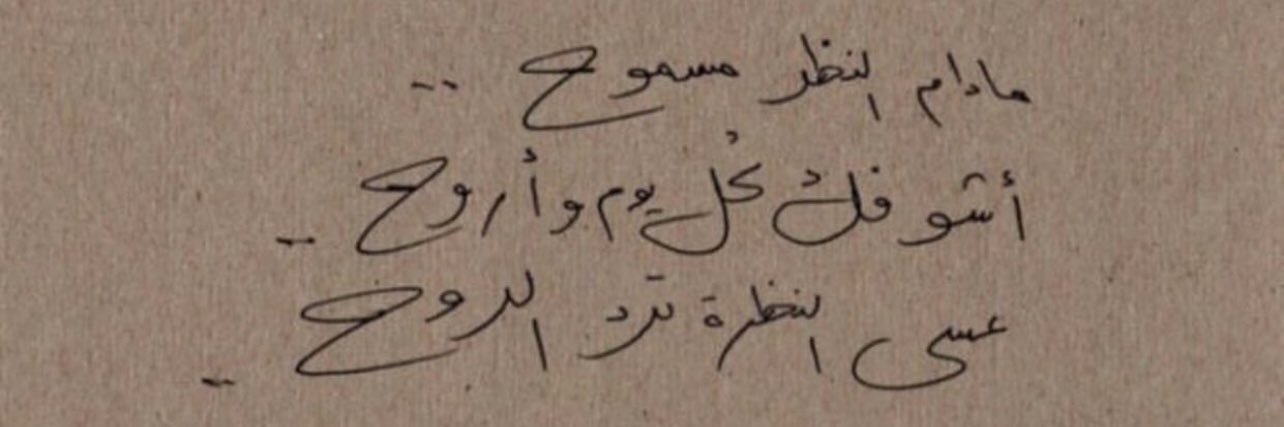 مادام النظر مسموح ..
أشوفك كُل يوم وأروح ..
عسى النظرة ترد الروح ..